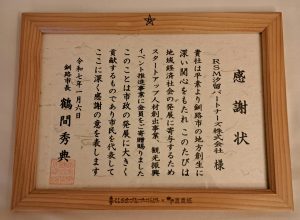 感謝状
RSM汐留パートナーズ株式会社 様
貴社は平素より釧路市の地方創生に
深い関心をもたれ このたびは
地域経済社会の発展に寄与するため
スタートアップ人材創出事業、観光振興
イベント推進事業に多額のご寄贈を賜りました
このことは市政の発展に大きく
貢献するものであり市民を代表して
ここに深く感謝の意を表します
令和七年一月六日
釧路市長 鶴間秀典